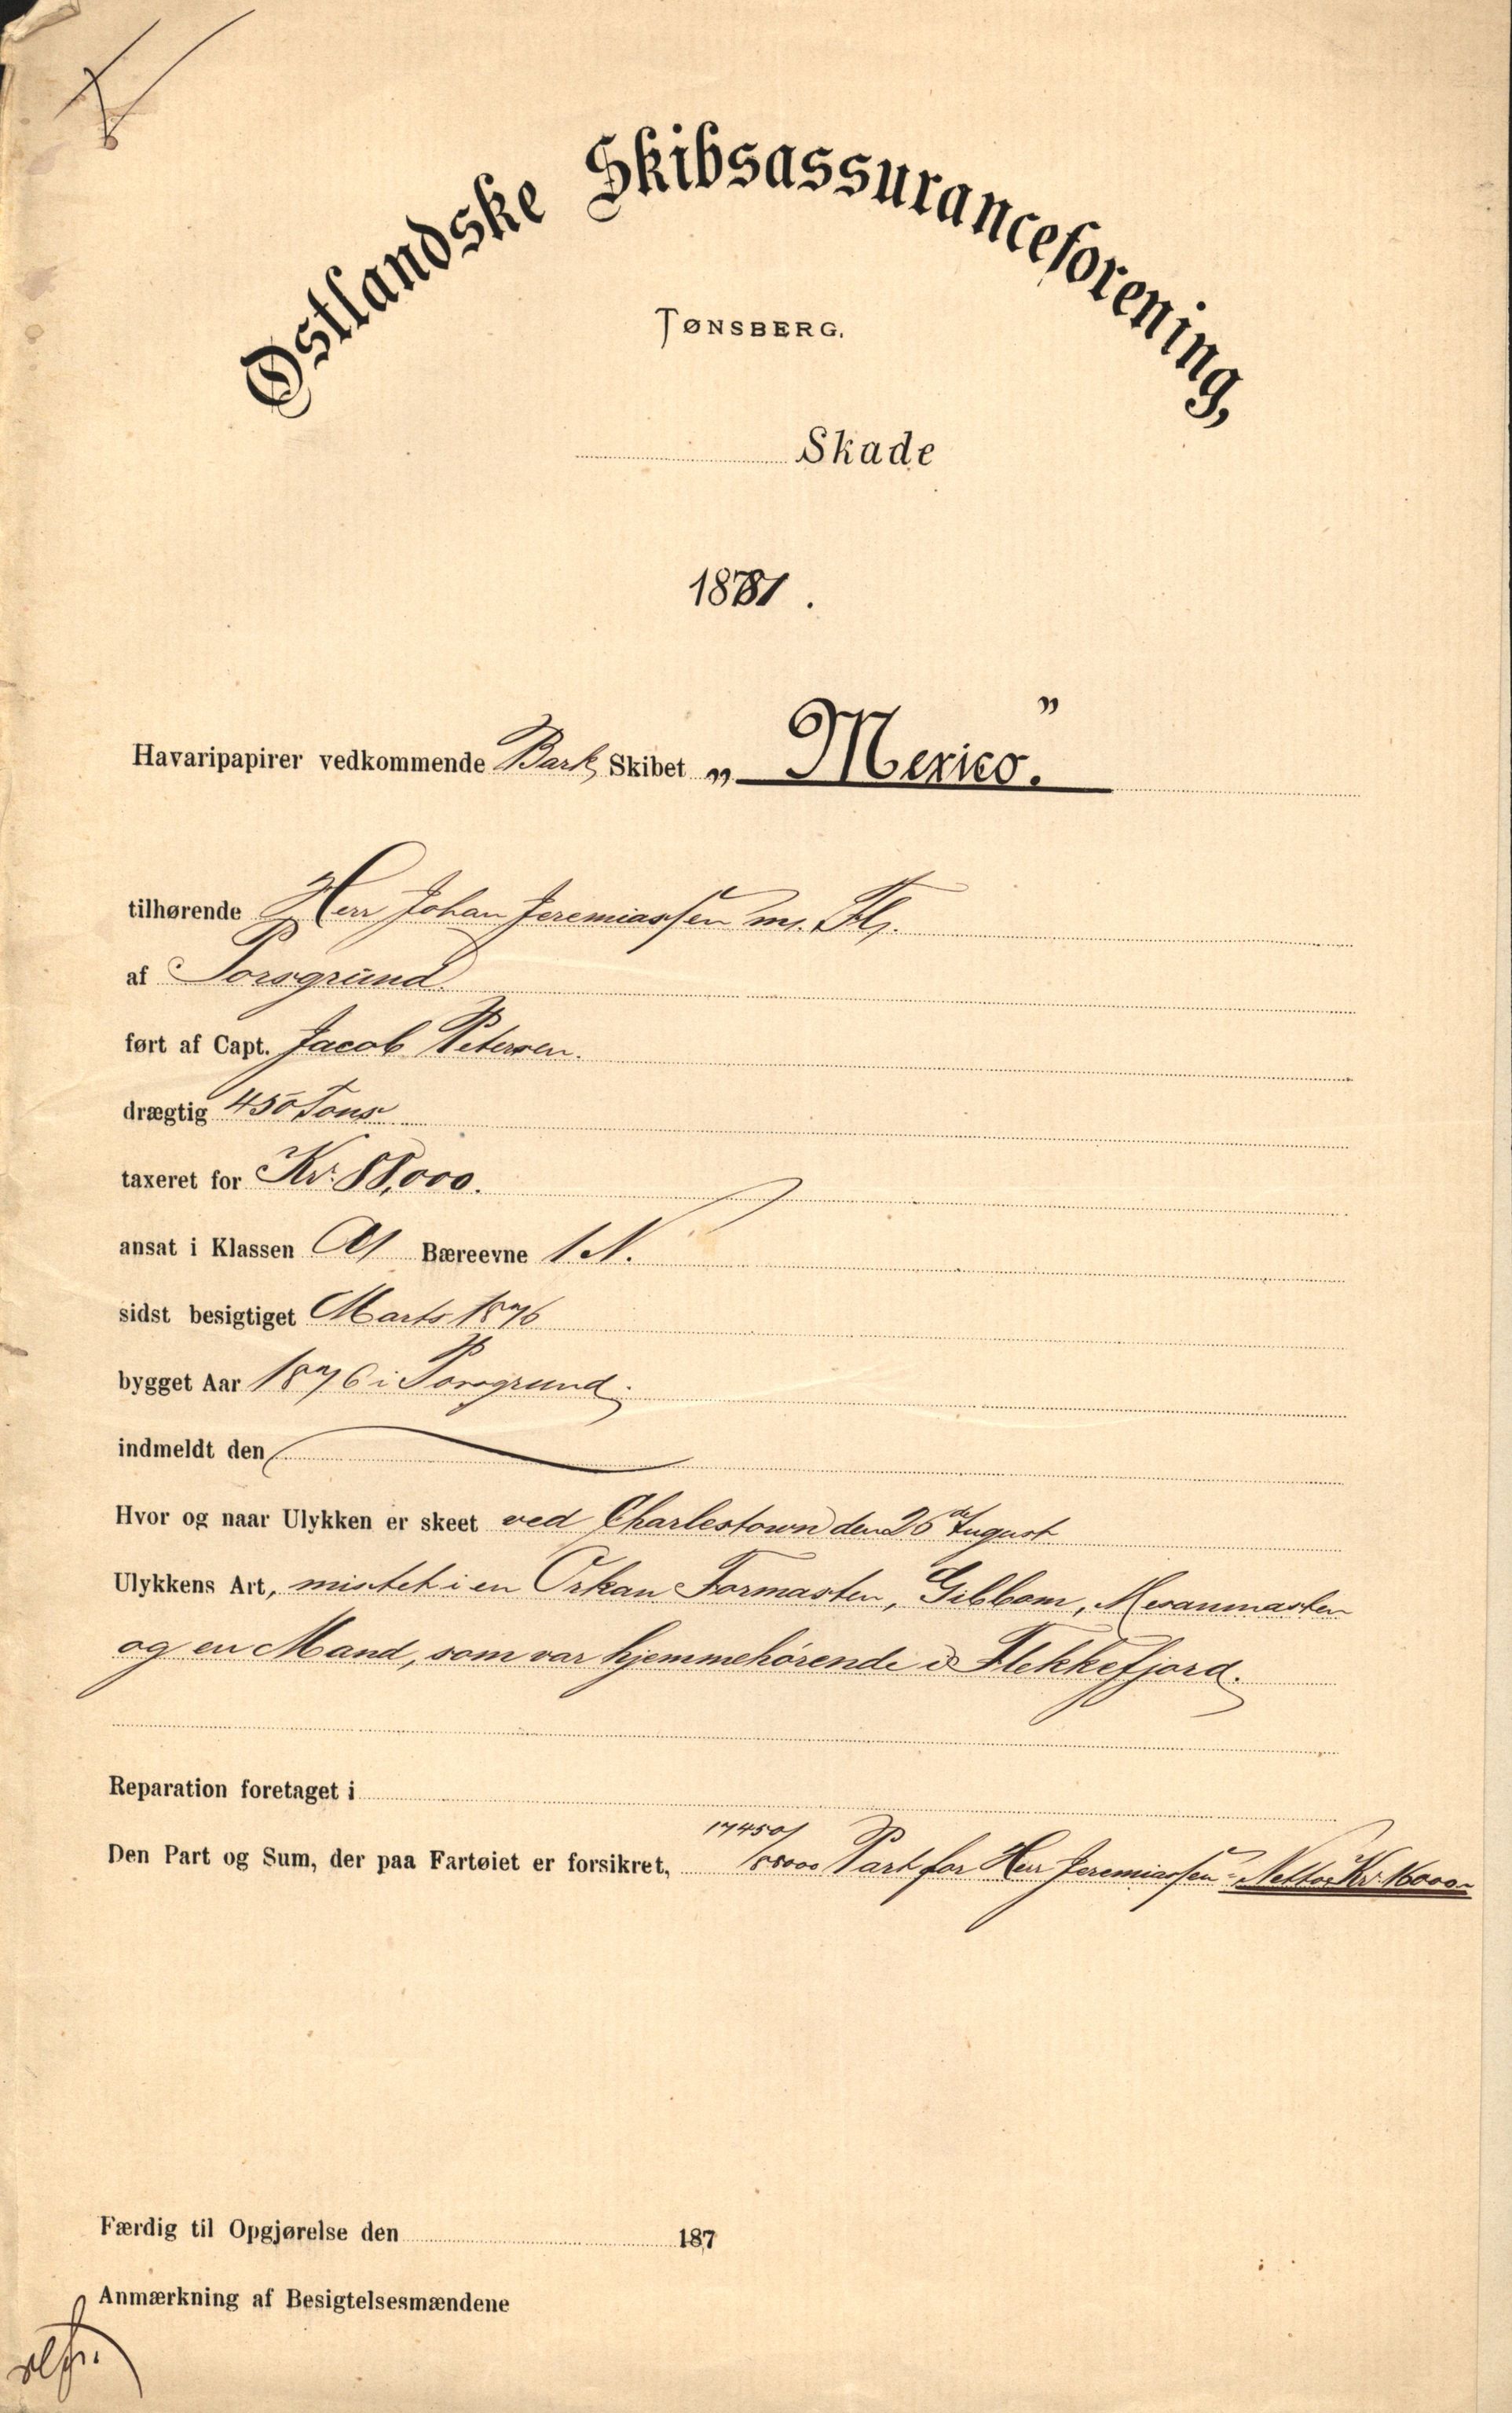 Østlandske Skibsassuranceforening,
TØNSBERG.
Skade
1881.
Havaripapirer vedkommende Bark Skibet „Mexico."
tilhørende Herr Johan Jeremiassen m. Fl.
af Porsgrund.
ført af Capt. Jacob Petersen.
drægtig 450 Tons
taxeret for Kr. 88,000.
ansat i Klassen A1 Bæreevne 1 N.
sidst besigtiget Marts 1876
bygget Aar 1876 i Porsgrund.
indmeldt den
Hvor og naar Ulykken er skeet ved Charlestown den 26de August
Ulykkens Art, mistet i en Orkan Formasten, Gibbom, Mesanmasten
og en Mand, som var hjemmehørende i Flekkefjord.
Reparation foretaget i
Den Part og Sum, der paa Fartøiet er forsikret, 17450/88000 Part for Herr Jeremiassen - Netto Kr. 16000-
Færdig til Opgjørelse den 187
Anmærkning af Besigtelsesmændene